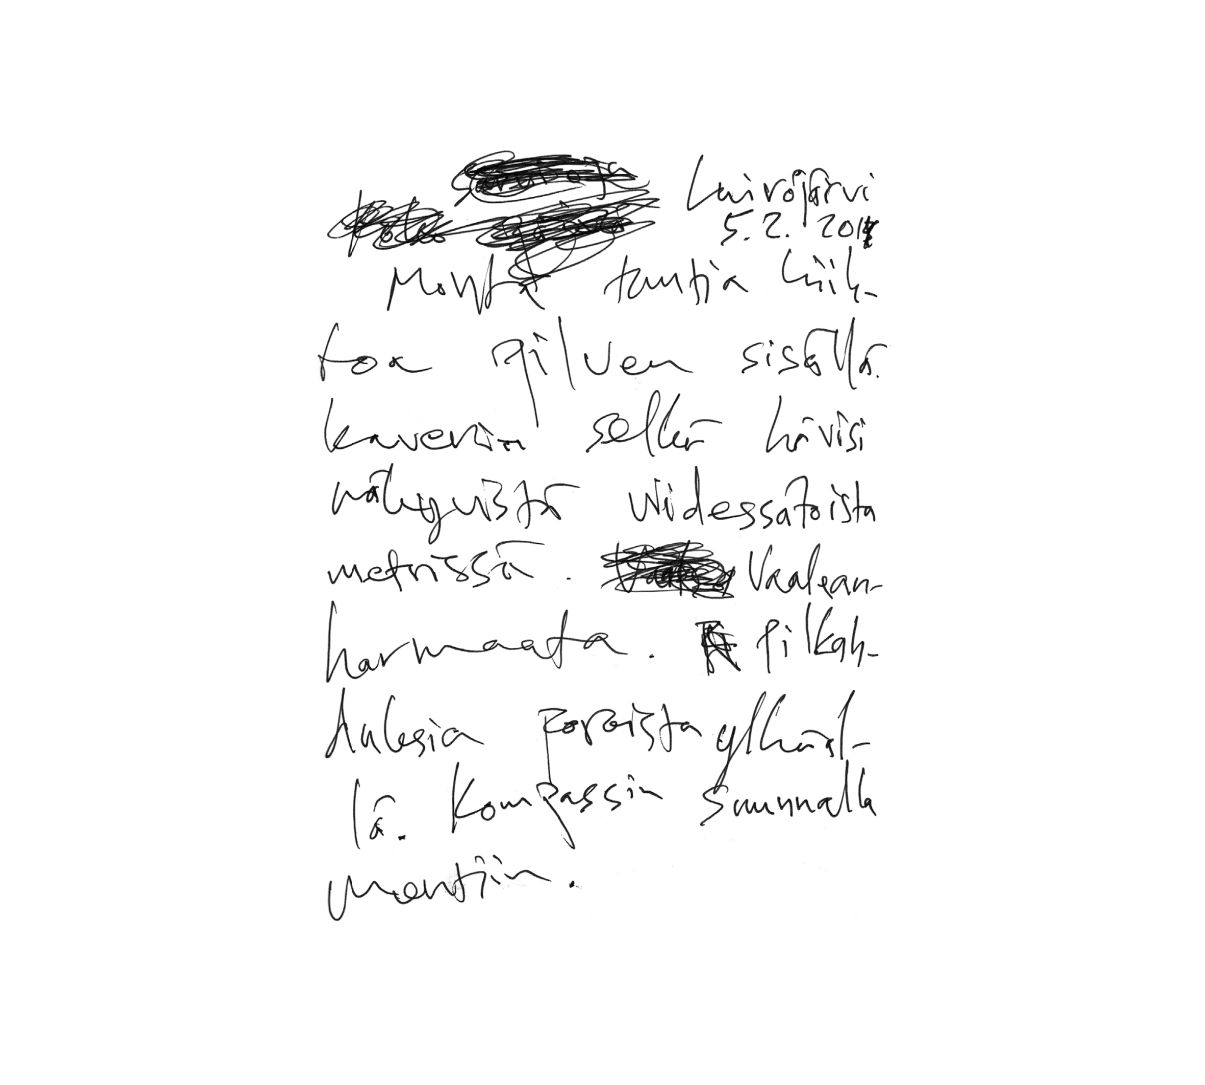 Luirojärvi
5.2. 201
Monta tuntia hiih-
toa pilven sisällä.
kaverin selkä hävisi
näkyvistä viidessätoista
metrissä. Vaalean-
harmaata. Pilkah-
duksia poroista ylhääl-
lä. Kompassin suunnalla
mentiin.